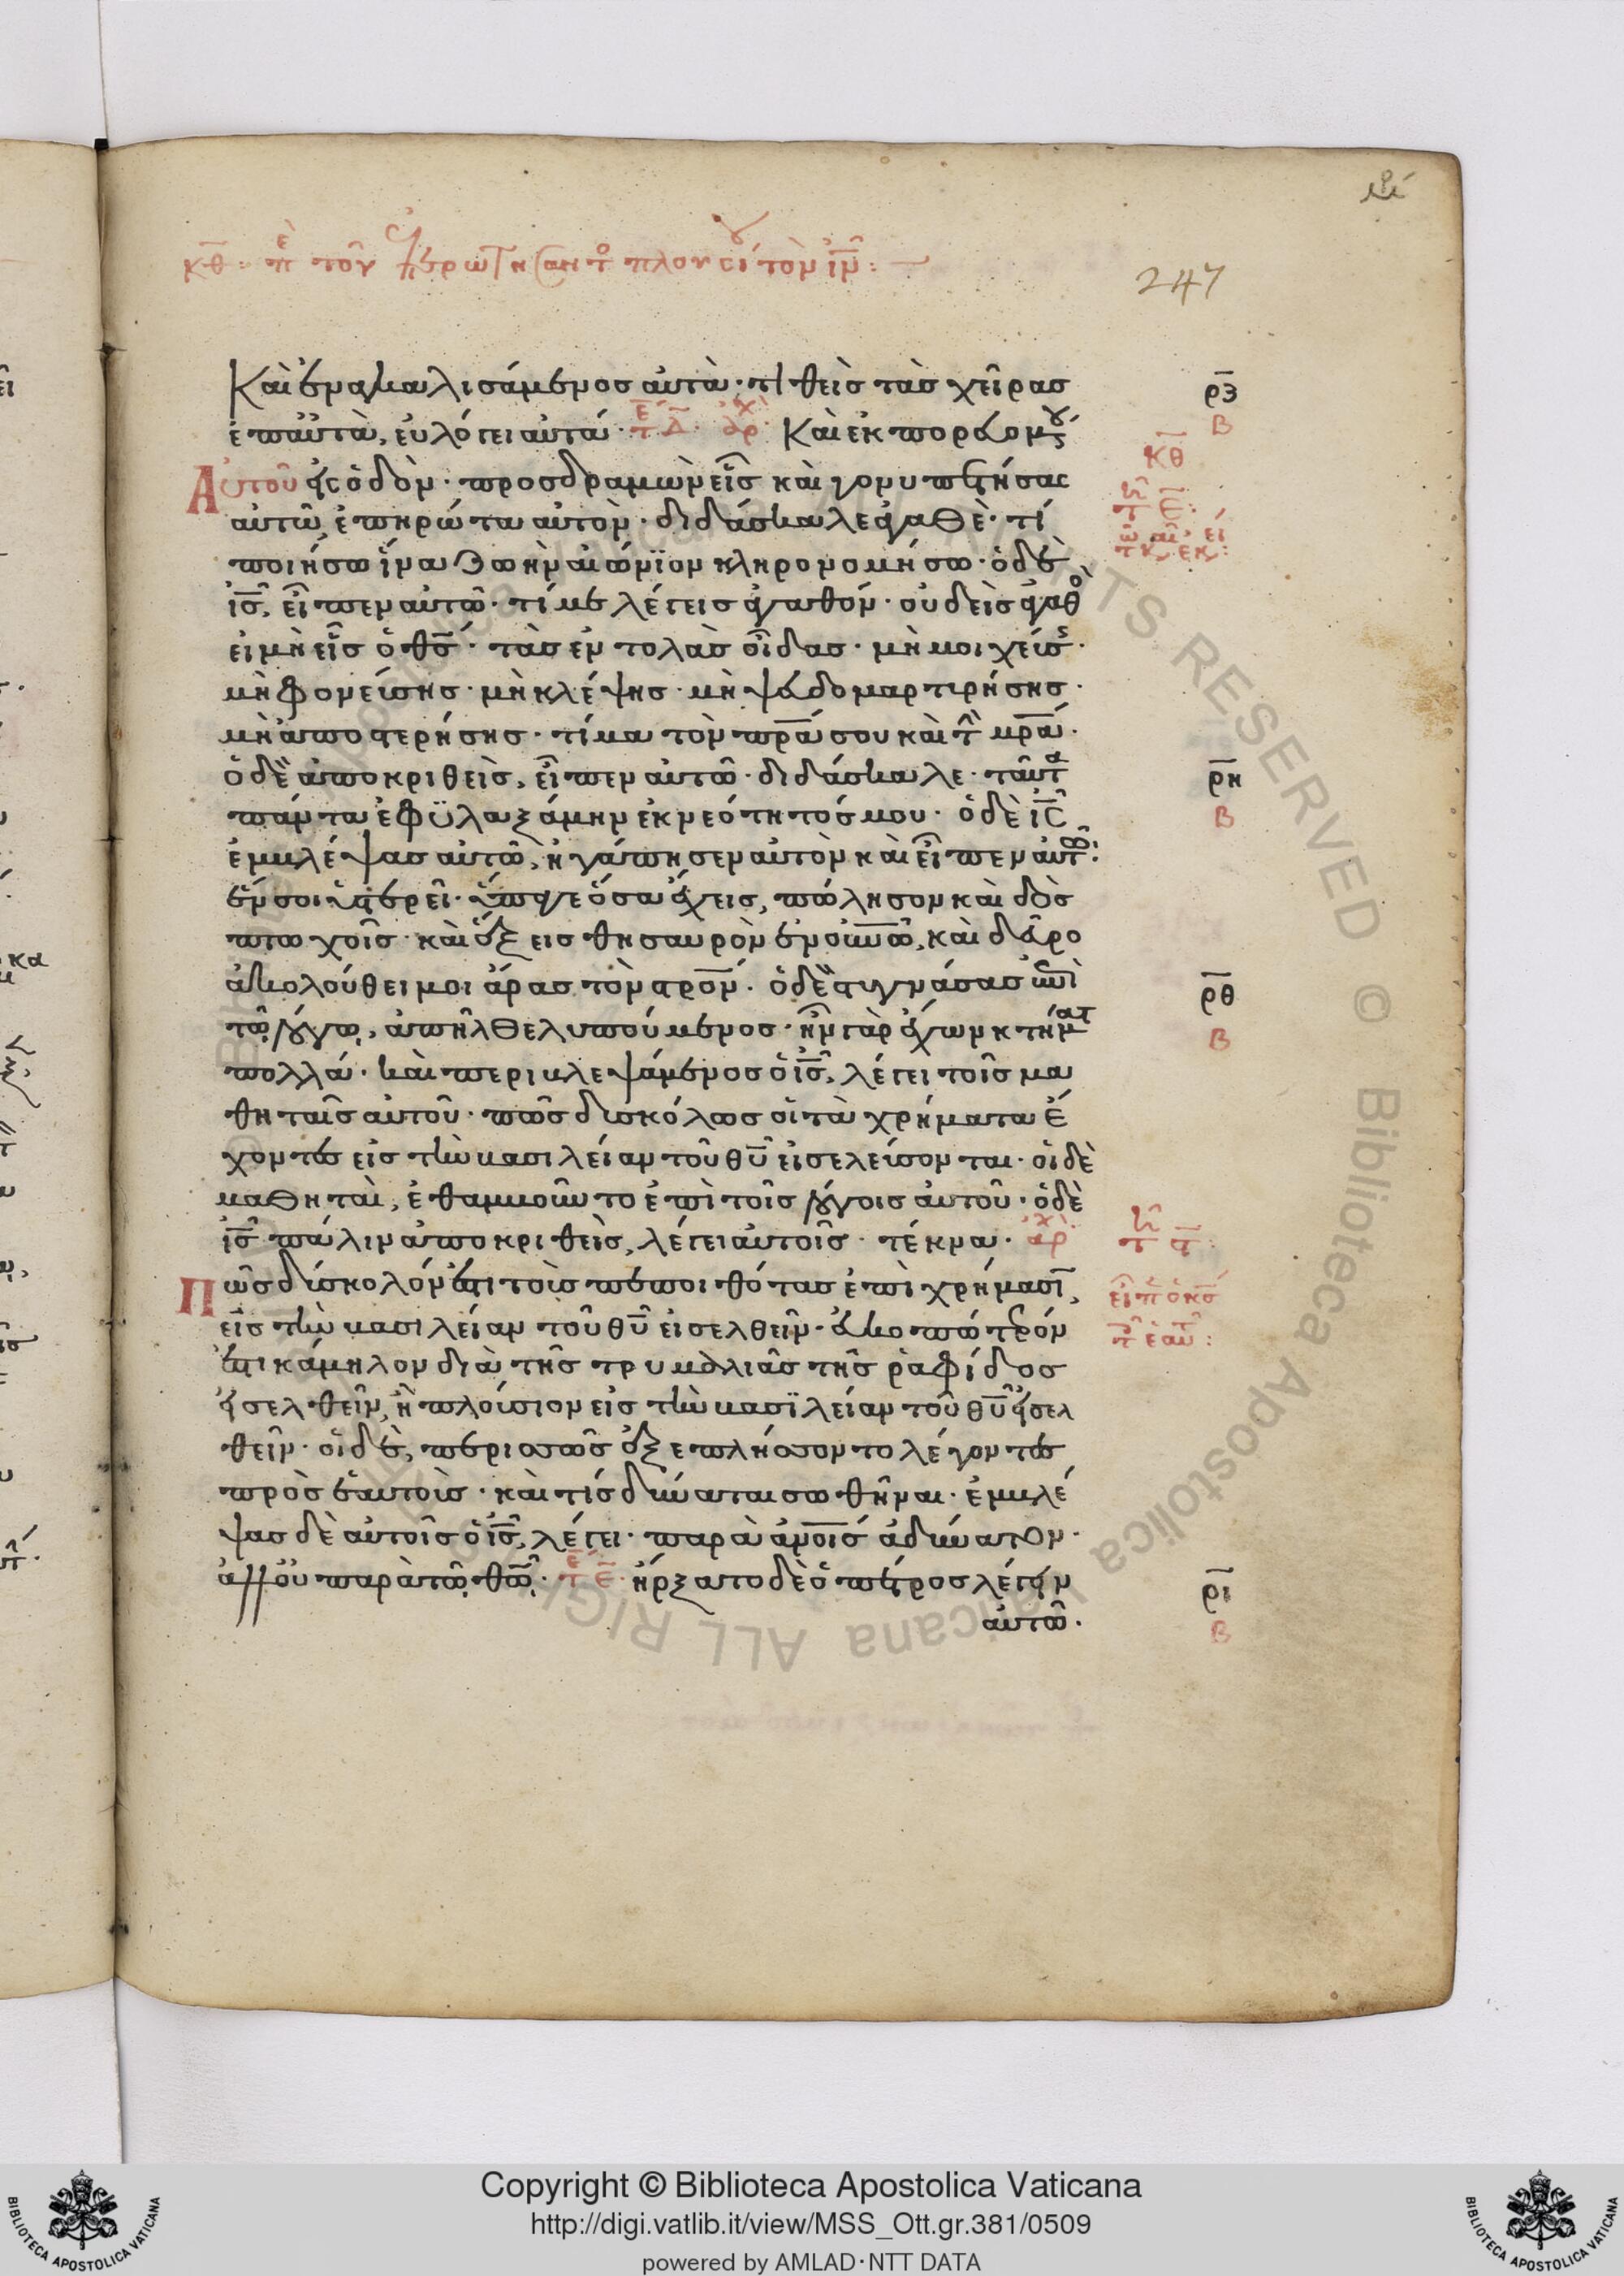 κθ : πε του επερωτησαντος πλουσίου τὸν ἰν :
247
Καὶ ἐναγκαλισάμενος αὐτὰ · τιθεὶς τὰς χεῖρας
ἐπαὐτὰ, εὐλόγει αὐτά · τέ δ · ἀρχ · Καὶ ἐκπορευομένου
Αὐτοῦ εἰς ὁδὸν · προσδραμὼν εἷς καὶ γονυπετήσας
αὐτῶ, ἐπηρώτα αὐτὸν · διδάσκαλε ἀγαθὲ · τί
ποιήσω ἵνα ζωὴν αἰώνϊον κληρονομήσω · ὁ δὲ
ις, εἶπεν αὐτῶ · τί με λέγεις ἀγαθόν · οὐδεὶς ἀγαθὸς
εἰ μὴ εἷς ὁ θς · τὰς ἐντολὰς οἶδας · μὴ μοιχεύσης ·
μὴ φονεύσης · μὴ κλέψης · μὴ ψευδομαρτυρήσης ·
μὴ ἀποστερήσης · τίμα τὸν πρα σου καὶ τὴν μρα ·
ὁ δὲ ἀποκριθεὶς, εἶπεν αὐτῶ · διδάσκαλε · ταῦτα
πάντα ἐφϋλαξάμην ἐκ νεότητός μου · ὁ δὲ ις
ἐμβλέψας αὐτῶ, ἠγάπησεν αὐτὸν καὶ εἶπεν αὐτῶ :
ἕν σοι ὑστερεῖ · ὕπαγε ὅσα ἔχεις, πώλησον καὶ δὸς
πτωχοῖς · καὶ ἕξεις θησαυρὸν ἐν οὐνω, καὶ δεῦρο
ἀκολούθει μοι ἄρας τὸν στρον · ὁ δὲ στυγνάσας ἐπὶ
τῶ λόγω, ἀπῆλθε λυπούμενος · ἦν γὰρ ἔχων κτήματα
πολλά · καὶ περιβλεψάμενος ὁ ις, λέγει τοῖς μα
θηταῖς αὐτοῦ · πῶς δυσκόλως οἱ τὰ χρήματα ἔ
χοντες εἰς τὴν βασιλείαν τοῦ θυ εἰσελεύσονται · οἱ δὲ
μαθηταὶ, ἐθαμβοῦντο ἐπὶ τοῖς λόγοις αὐτοῦ · ὁ δὲ
ις πάλιν ἀποκριθεὶς, λέγει αὐτοῖς · τέκνα · ἀρχ
Πῶς δύσκολόν ἐστι τοὺς πεποιθότας ἐπὶ χρήμασι,
εἰς τὴν βασιλείαν τοῦ θυ εἰσελθεῖν · εὐκοπώτερόν
ἐστι κάμηλον διὰ τῆς τρυμαλιᾶς τῆς ῥαφίδος
εἰσελθεῖν, ἢ πλούσιον εἰς τὴν βασϊλείαν τοῦ θυ εἰσελ
θεῖν · οἱ δὲ, περισσῶς ἐξεπλήσσοντο λέγοντες
πρὸς ἑαυτούς · καὶ τίς δύναται σωθῆναι · ἐμβλέ
ψας δὲ αὐτοῖς ὁ ις, λέγει · παρὰ ἀνοις ἀδύνατον ·
ἀλλ οὐ παρὰ τῶ θω · τέ ε · ἤρξατο δὲ ὁ πέτρος λέγειν
αὐτῶ ·
ρζ
β
κθ
ρη
β
ρθ
β
εἶπ ὁ κς
ρι
β
Copyright © Biblioteca Apostolica Vaticana
http://digi.vatlib.it/view/MSS_Ott.gr.381/0509
powered by AMLAD·NTT DATA
BIBLIOTECA APOSTOLICA VATICANA
BIBLIOTECA APOSTOLICA VATICANA